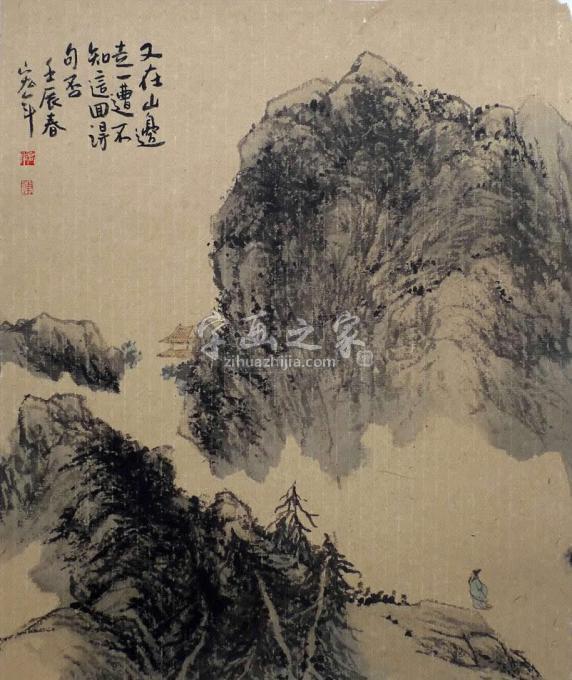 又在山邊
走一遭不
知這回得
句否
壬辰春
宏年
字画之家
zihuazhijia.com